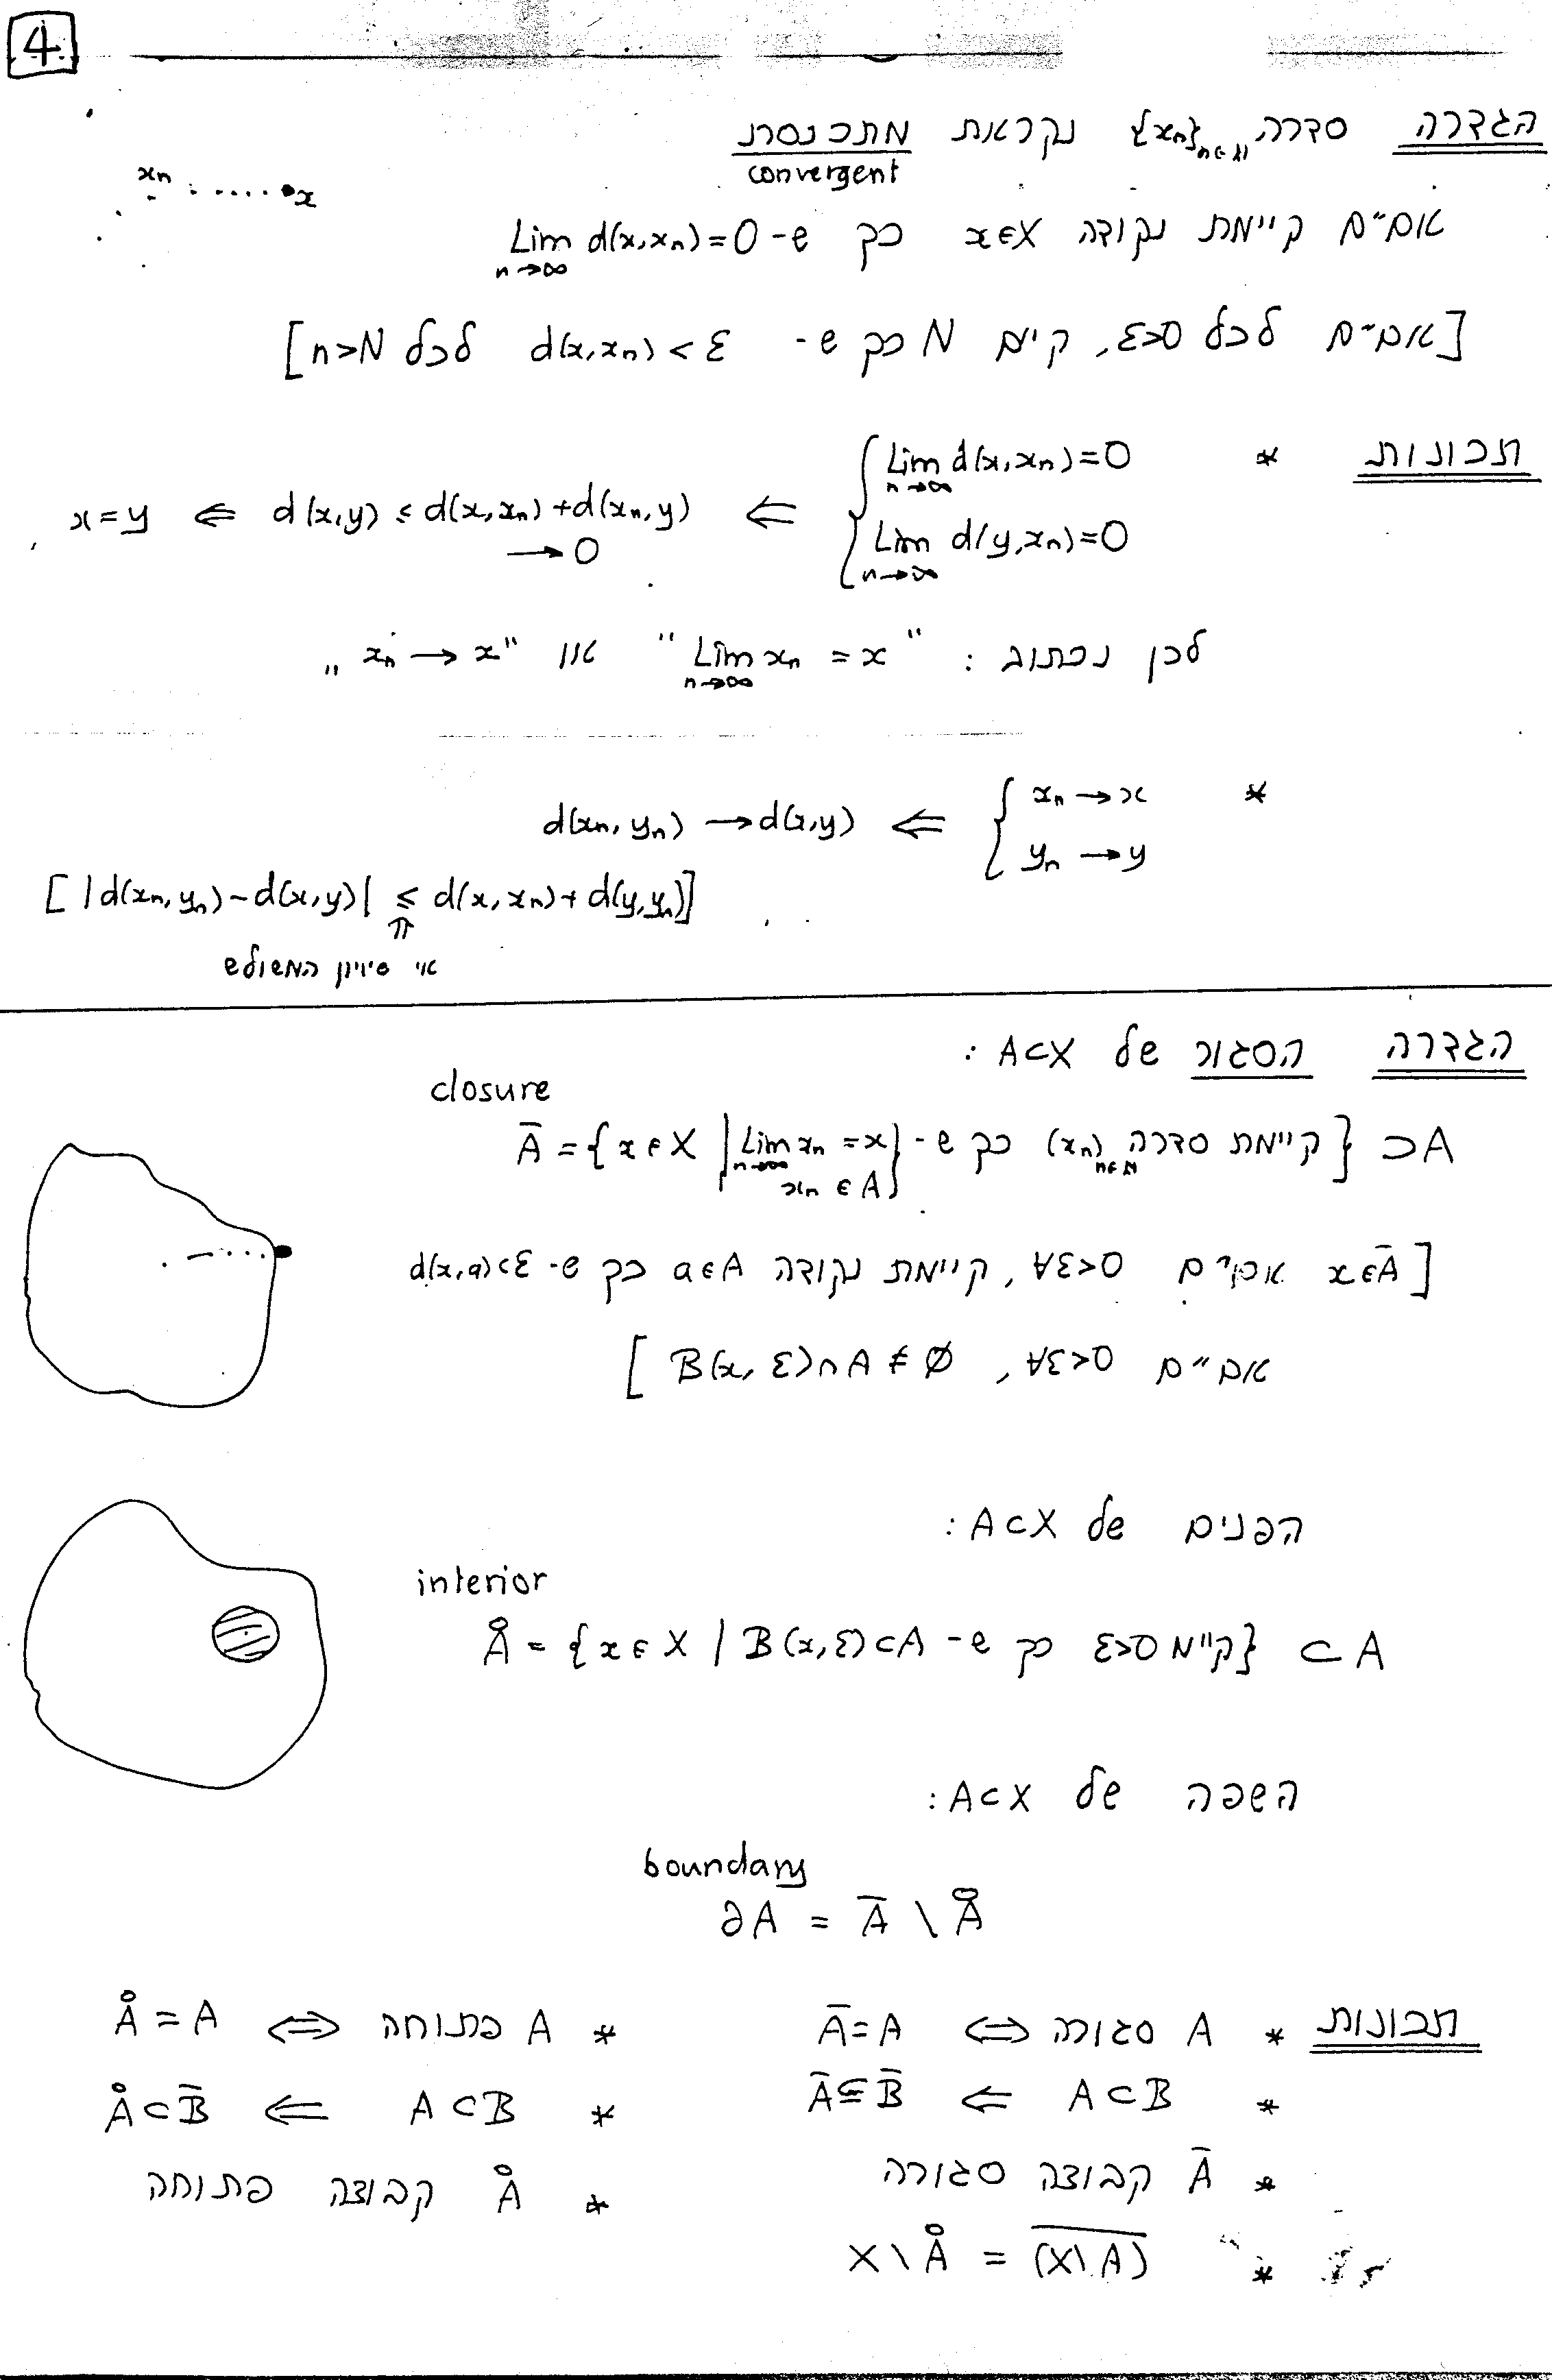 4
הגדרה סדרה {xₙ}ₙ∈ℕ נקראת מתכנסת
convergent
xₙ x
אם"ם קיימת נקודה x∈X כך ש- Lim n→∞ d(x,xₙ)=0
[אם"ם לכל ε>0, קיים N כך ש- d(x,xₙ) < ε לכל n>N]
תכונות * { Lim n→∞ d(x,xₙ)=0
Lim n→∞ d(y,xₙ)=0 ⇐ d(x,y) ≤ d(x,xₙ)+d(xₙ,y) ⇐ x=y
→0
לכן נכתוב : "Lim n→∞ xₙ = x" או "xₙ → x"
* { xₙ → x
yₙ → y ⇐ d(xₙ,yₙ) → d(x,y)
[ |d(xₙ,yₙ)-d(x,y)| ≤ d(x,xₙ)+d(y,yₙ)]
⇑
אי שיויון המשולש
הגדרה הסגור של A⊂X :
closure
Ā = {x∈X | Lim n→∞ xₙ = x, xₙ∈A קיימת סדרה (xₙ)ₙ∈ℕ כך ש-} ⊃A
[x∈Ā אם"ם ∀ε>0, קיימת נקודה a∈A כך ש- d(x,a)<ε
אם"ם ∀ε>0, B(x,ε)∩A ≠ ∅ ]
הפנים של A⊂X :
interior
Å = {x∈X | B(x,ε)⊂A קיים ε>0 כך ש-} ⊂ A
השפה של A⊂X :
boundary
∂A = Ā \ Å
תכונות * A סגורה ⇔ Ā=A * A פתוחה ⇔ Å=A
* A⊂B ⇐ Ā⊆B̄ * A⊂B ⇐ Å⊂B̄
* Ā קבוצה סגורה * Å קבוצה פתוחה
* X\Å = \overline{(X\A)}